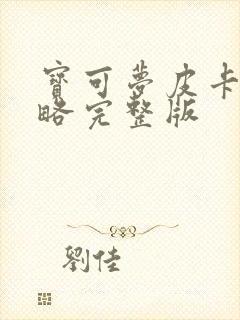 寶可夢皮卡
略完整版
劉佳